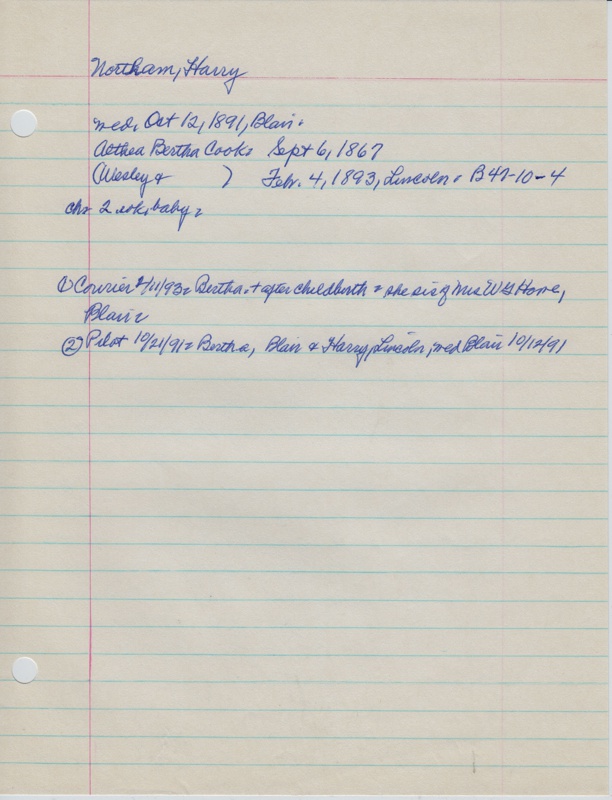 Northam, Harry
med. Oct 12, 1891, Blair.
Althea Bertha Cook. Sept 6, 1867
(Wesley & ) Febr. 4, 1893, Lincoln. B47-10-4
chr 2 wk. baby.
① Courier 2/11/93 = Bertha. + after childbirth = she sis of Mrs W G Horne,
Blair.
② Pilot 10/21/91 = Bertha, Blair & Harry, Lincoln, med Blair 10/12/91